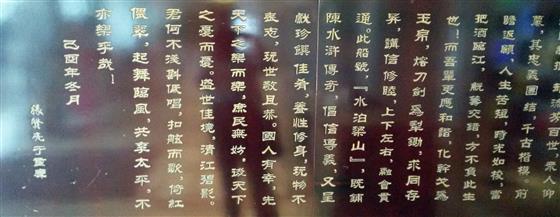 其忠義團結，千古楷模。前
瞻返顧，人生苦短，時光如梭，當
把酒臨江，觥籌交錯，方不負此生
也！而吾輩更應和諧，化幹戈為
玉帛，熔刀劍為犁鋤，求同存
异，講信修睦，上下左右，融會貫
通。此船號，『水泊梁山』，既鋪
陳水滸傳奇，倡信導義，又呈
戲珍饌佳肴，養性修身，玩物不
喪志，玩世敬且恭。國人有幸，先
天下之樂而樂，庶民無妨，後天下
之憂而憂。盛世佳境，清江碧影。
君何不淺斟低唱，扣舷而歌，倚紅
偎翠，起舞臨風，共享太平，不
亦樂乎哉！
己酉年冬月
張賢亮于